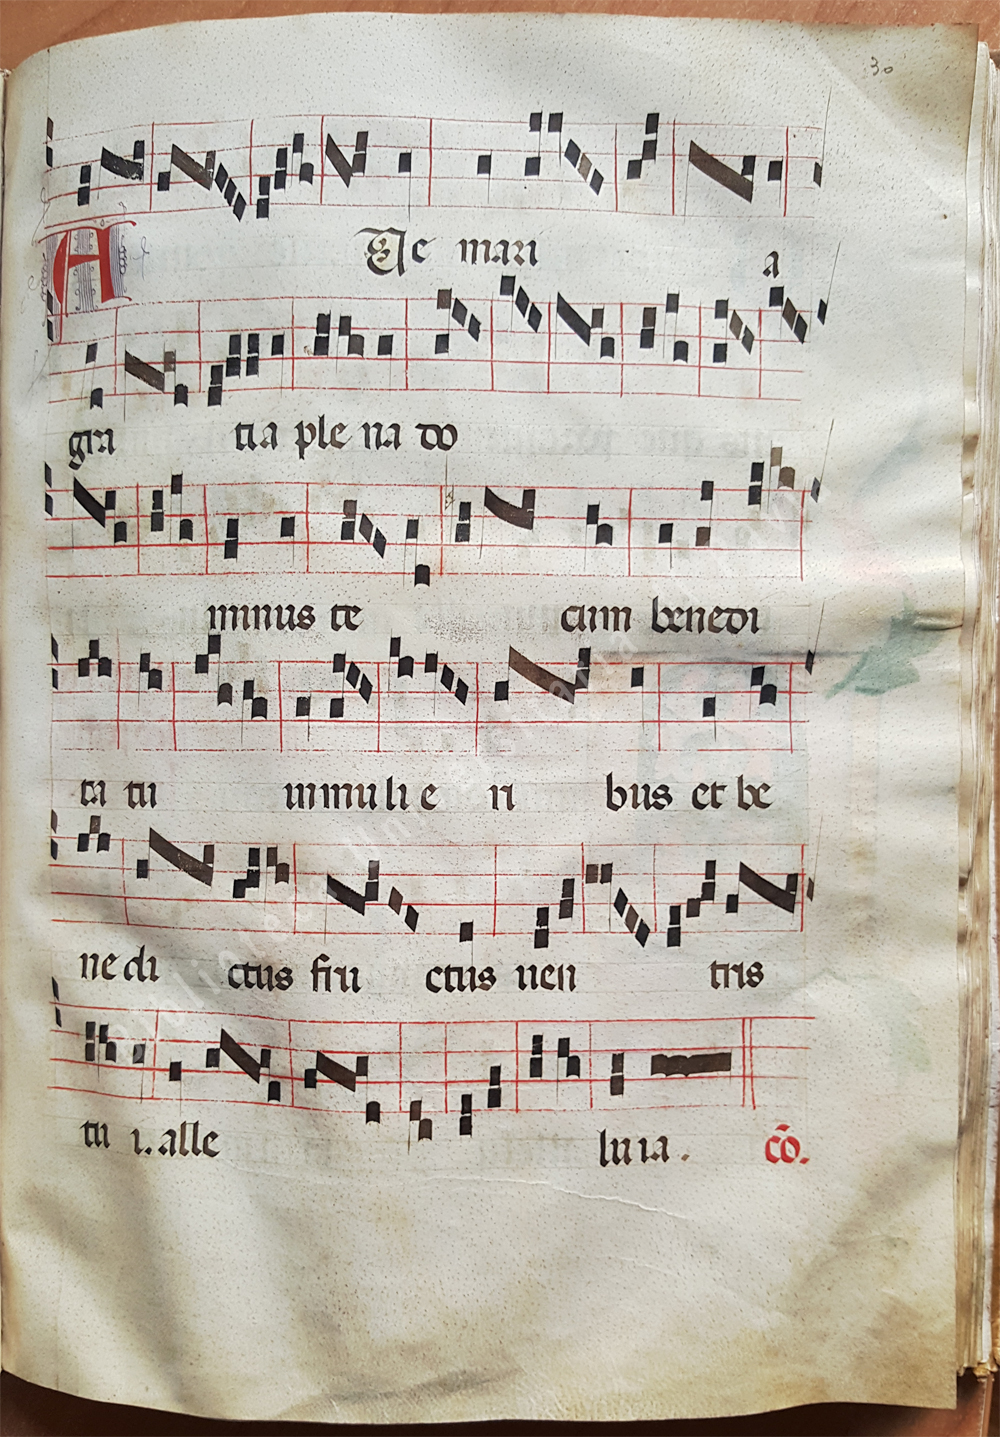 30
A Ve mari a
gra tia ple na do
minus te cum benedi
ta tu inmuli e ri bus et be
ne di ctus fru ctus uen tris
tu i. alle lu ia . cō.